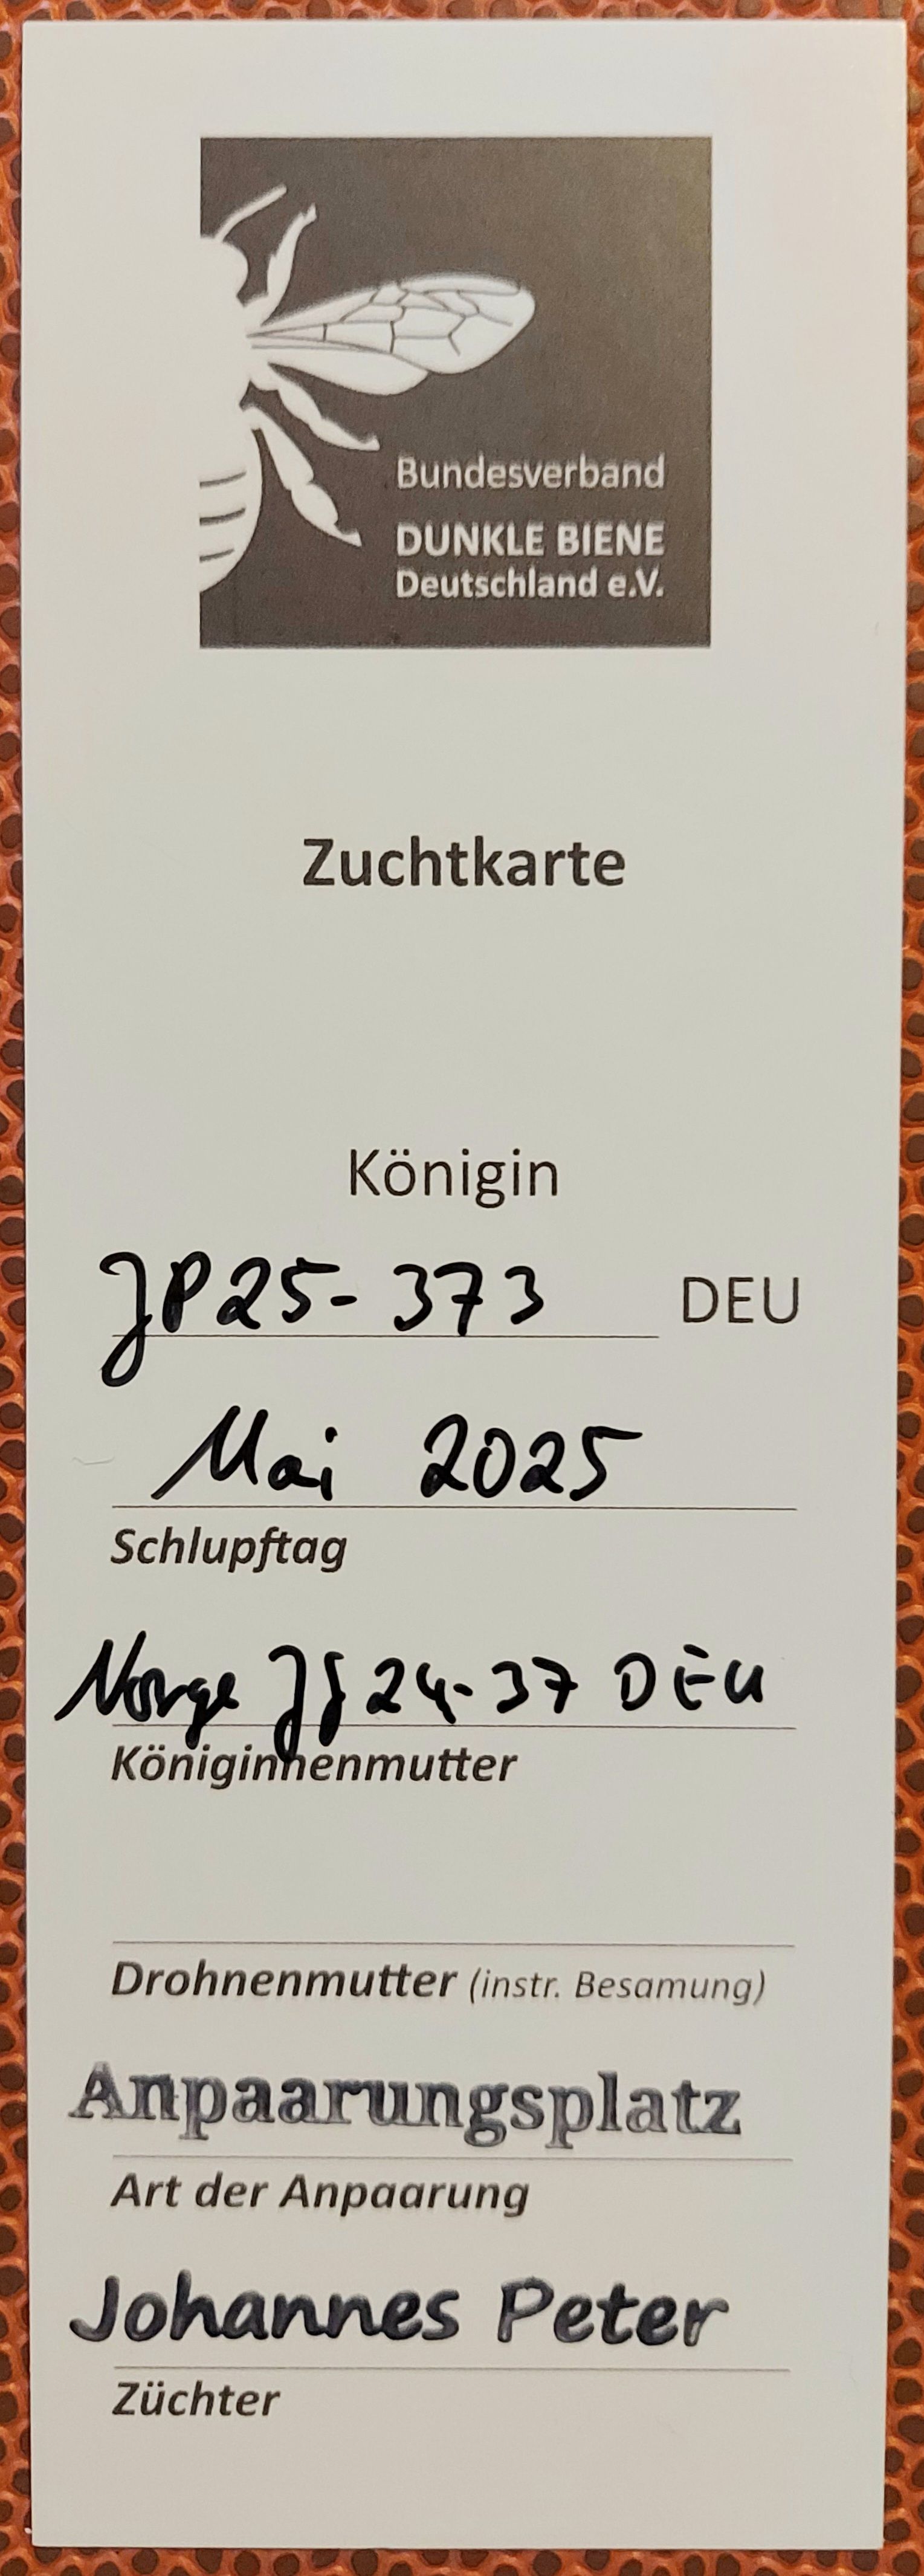 Bundesverband
DUNKLE BIENE
Deutschland e.V.
Zuchtkarte
Königin
JP25-373 DEU
Mai 2025
Schlupftag
Norge 24-37 DEU
Königinnenmutter
Drohnenmutter (instr. Besamung)
Anpaarungsplatz
Art der Anpaarung
Johannes Peter
Züchter